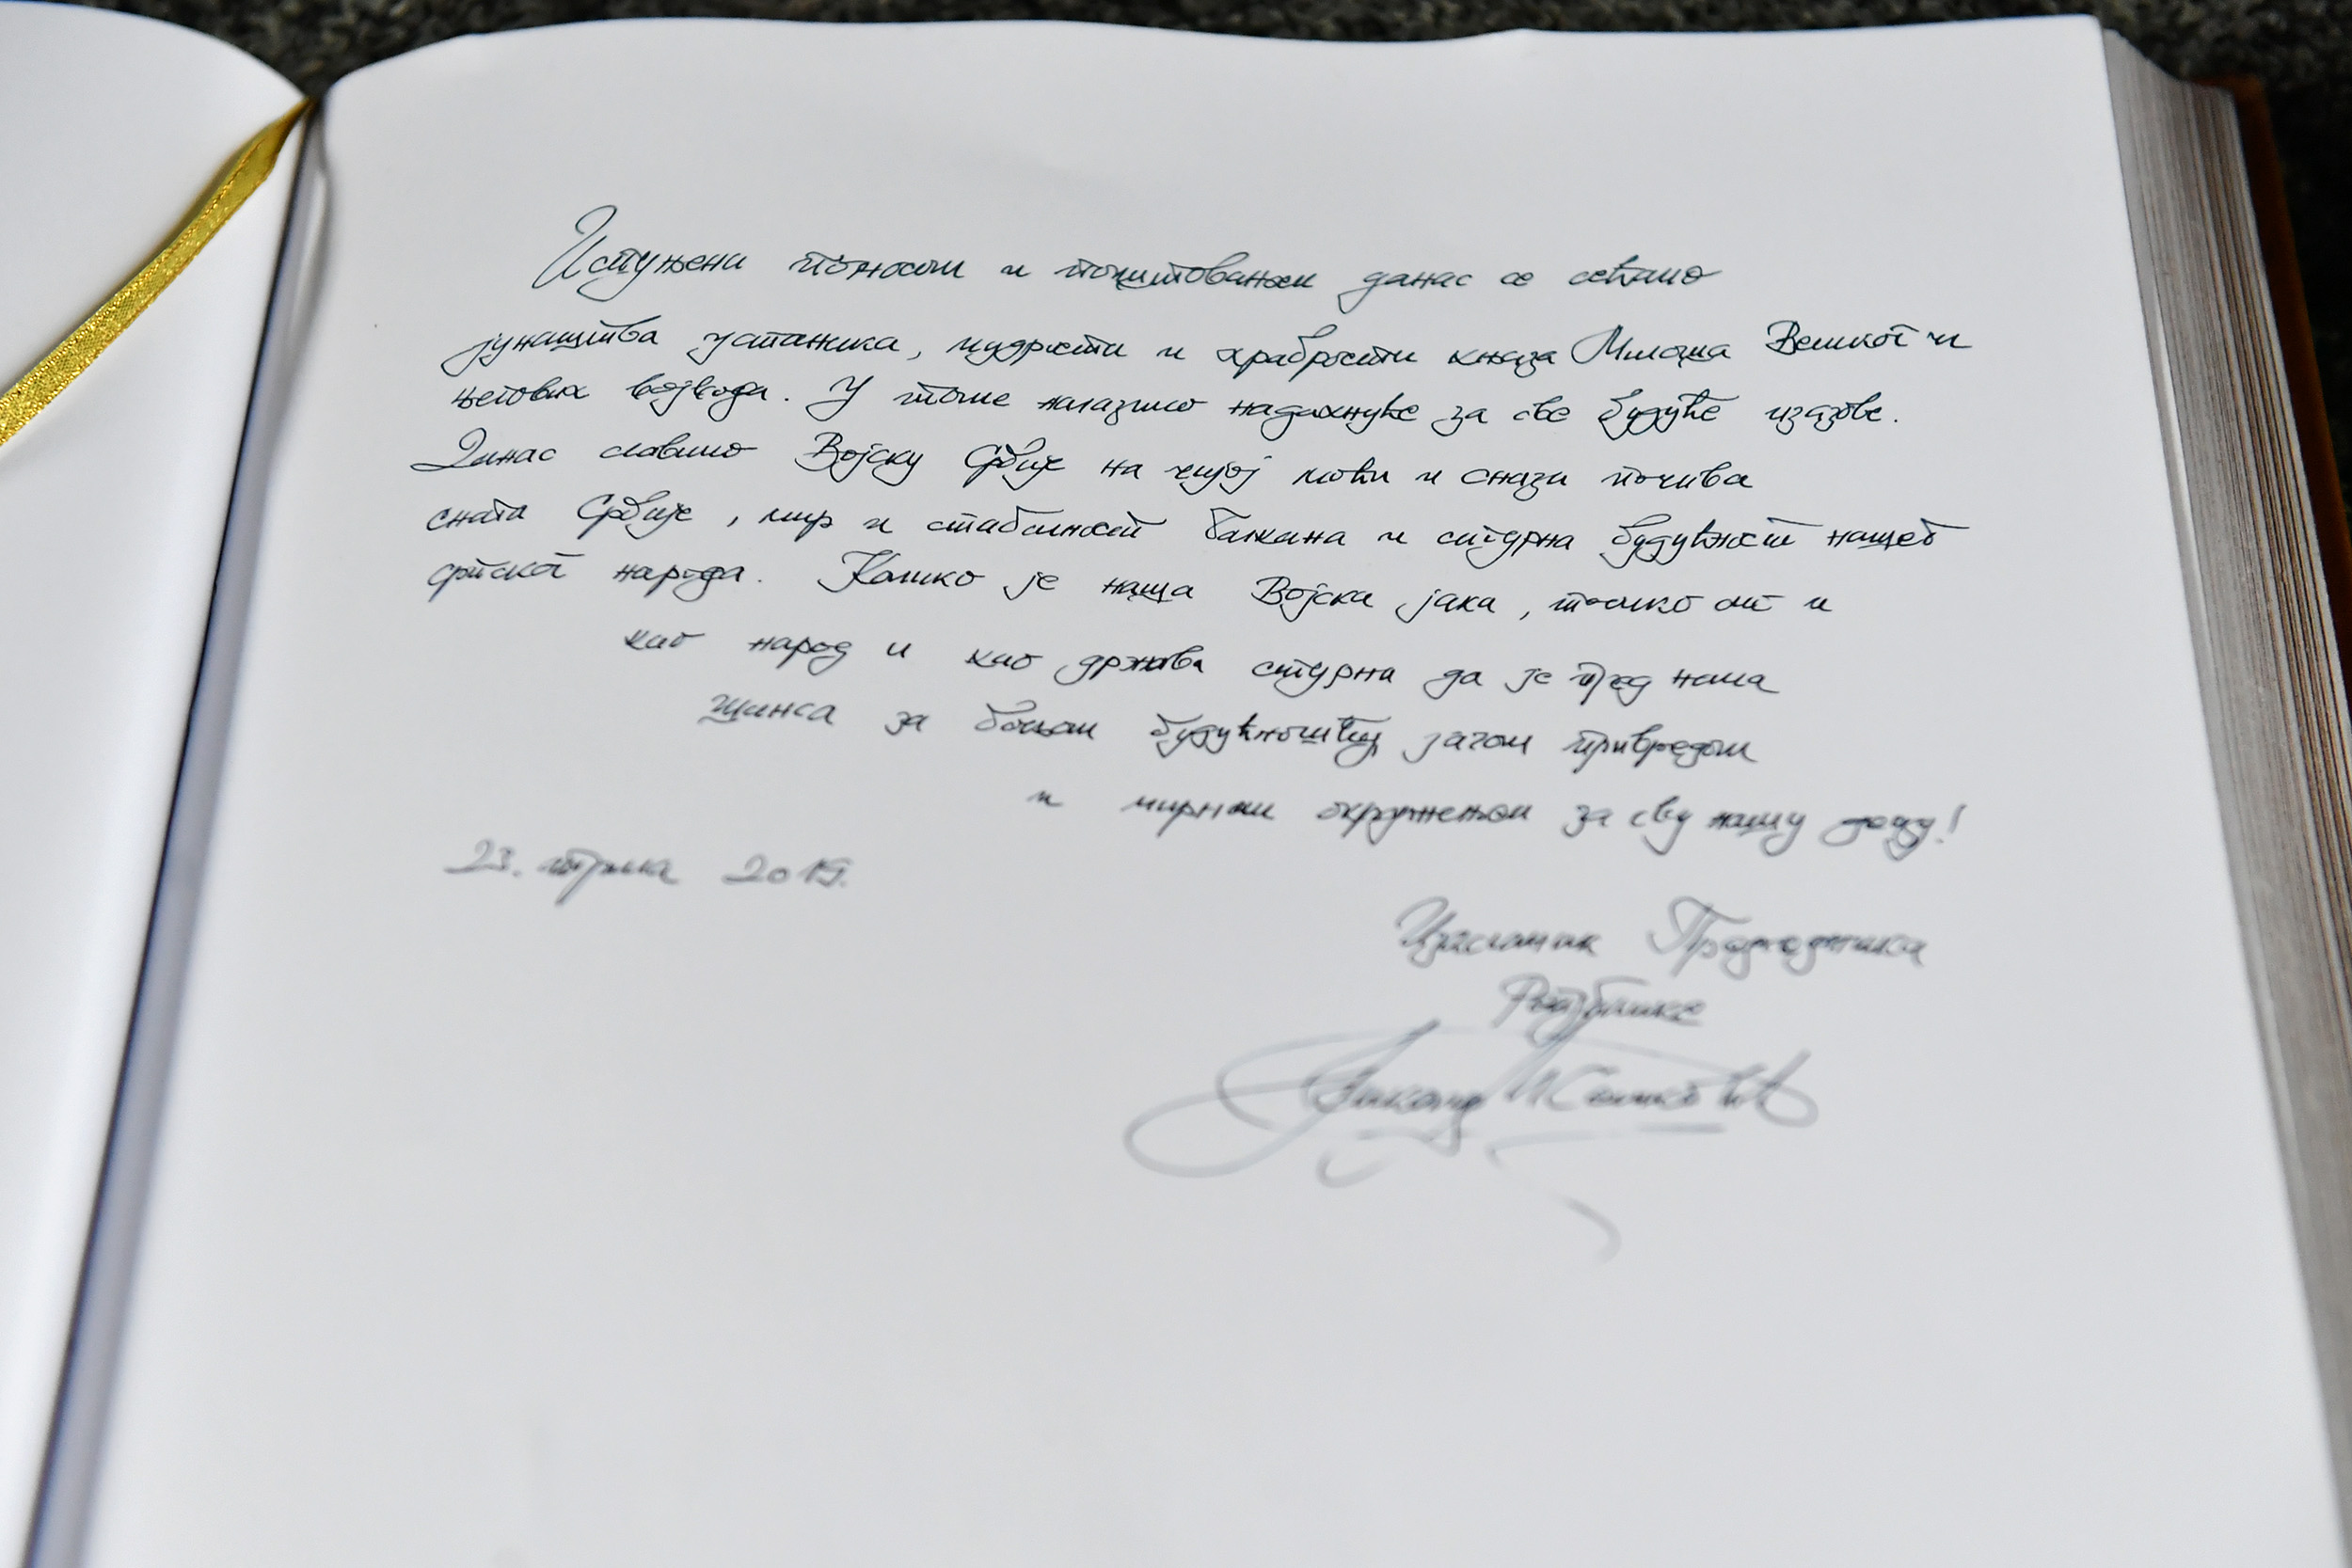 Испуњени поносом и поштовањем данас се сећамо
јунаштва устаника, мудрости и храбрости кнеза Милоша Великог и
његових војвода. У томе налазимо надахнуће за све будуће изазове.
Данас славимо Војску Србије на чијој моћи и снази почива
снага Србије, мир и стабилност Балкана и сигурна будућност нашег
српског народа. Колико је наша Војска јака, толико смо и
као народ и као држава сигурни да је пред нама
шанса за бољом будућношћу, јачом привредом
и мирном окружењем за сву нашу децу!
23. априла 2019.
Изасланик Председника
Републике